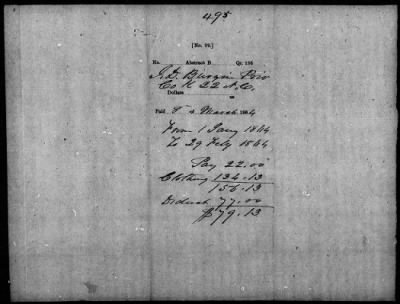 495
[No. 22.]
No. Abstract B Qr. 186
J. D. Burgin Priv
Co K 22 N.C.
Dollars
Paid 8" March 1864
From 1 Jany 1864
To 29 Feby 1864
Pay 22.00
Clothing 134.13
156.13
Deduct 77.00
$79.13